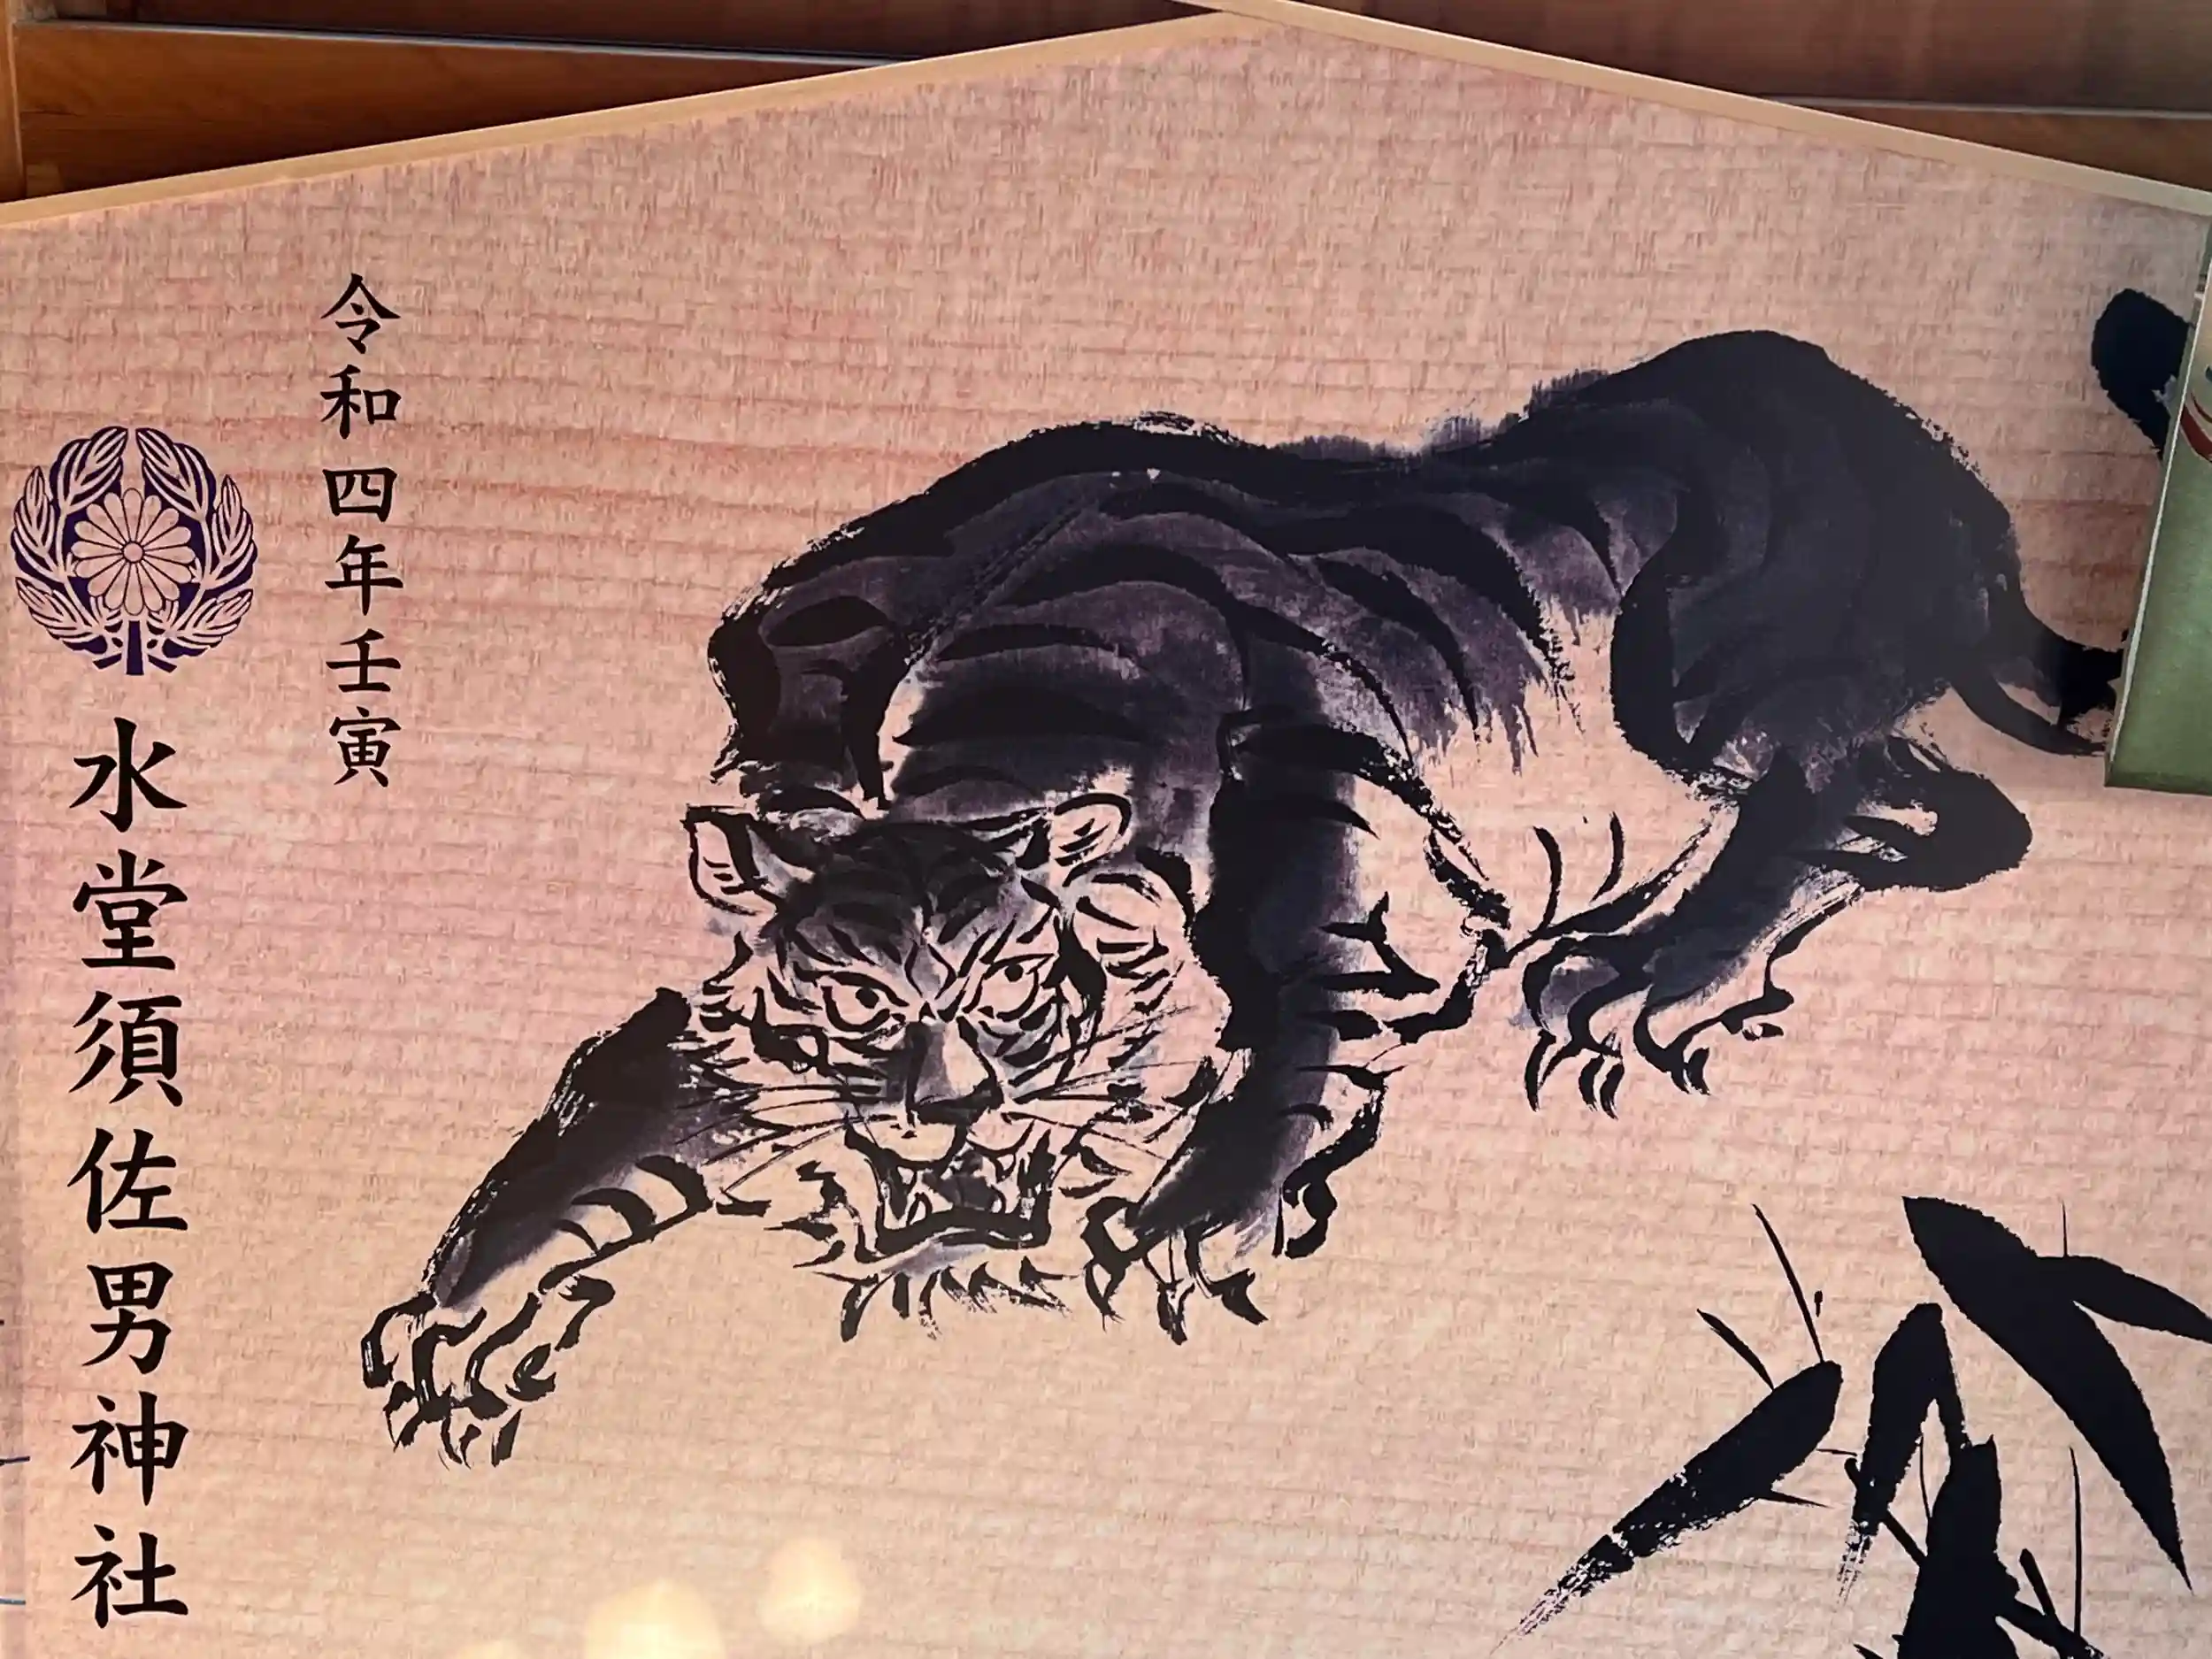 令和四年壬寅
水堂須佐男神社